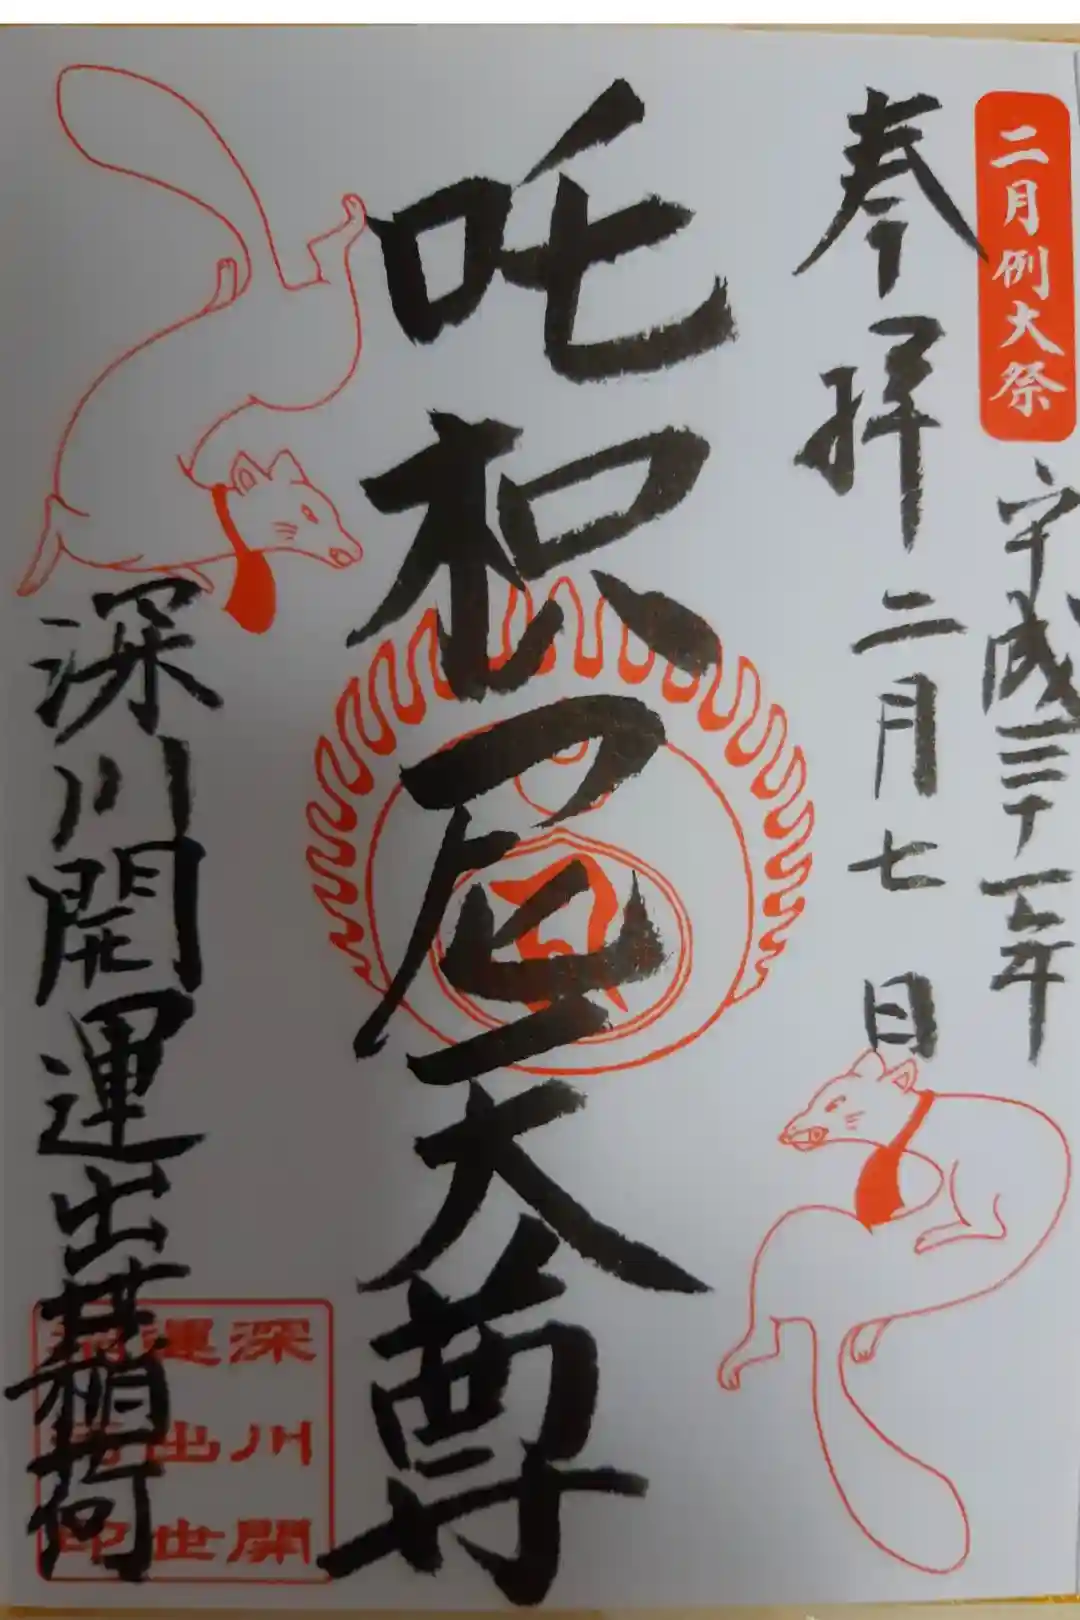 二月例大祭
平成三十一年
奉拝 二月七日
吒枳尼天尊
深川開運出世稲荷
深川開
運出世
稲荷印